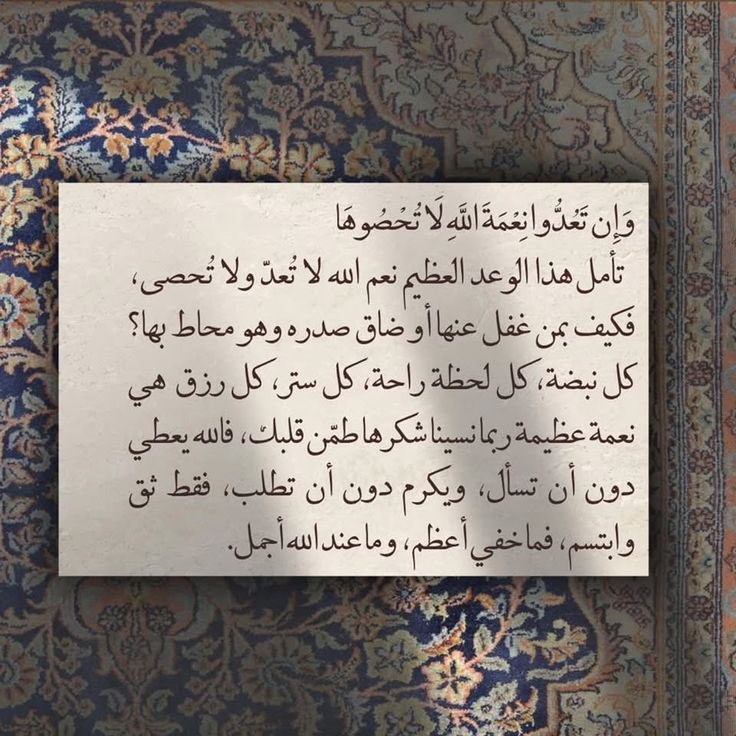 وَإِن تَعُدُّوا نِعْمَةَ اللَّهِ لَا تُحْصُوهَا
تأمل هذا الوعد العظيم نعم الله لا تُعدّ ولا تُحصى،
فكيف بمن غفل عنها أو ضاق صدره وهو محاط بها؟
كل نبضة، كل لحظة راحة، كل ستر، كل رزق هي
نعمة عظيمة ربما نسينا شكرها طمّن قلبك، فالله يعطي
دون أن تسأل، ويكرم دون أن تطلب، فقط ثق
وابتسم، فما خفي أعظم، وما عند الله أجمل.